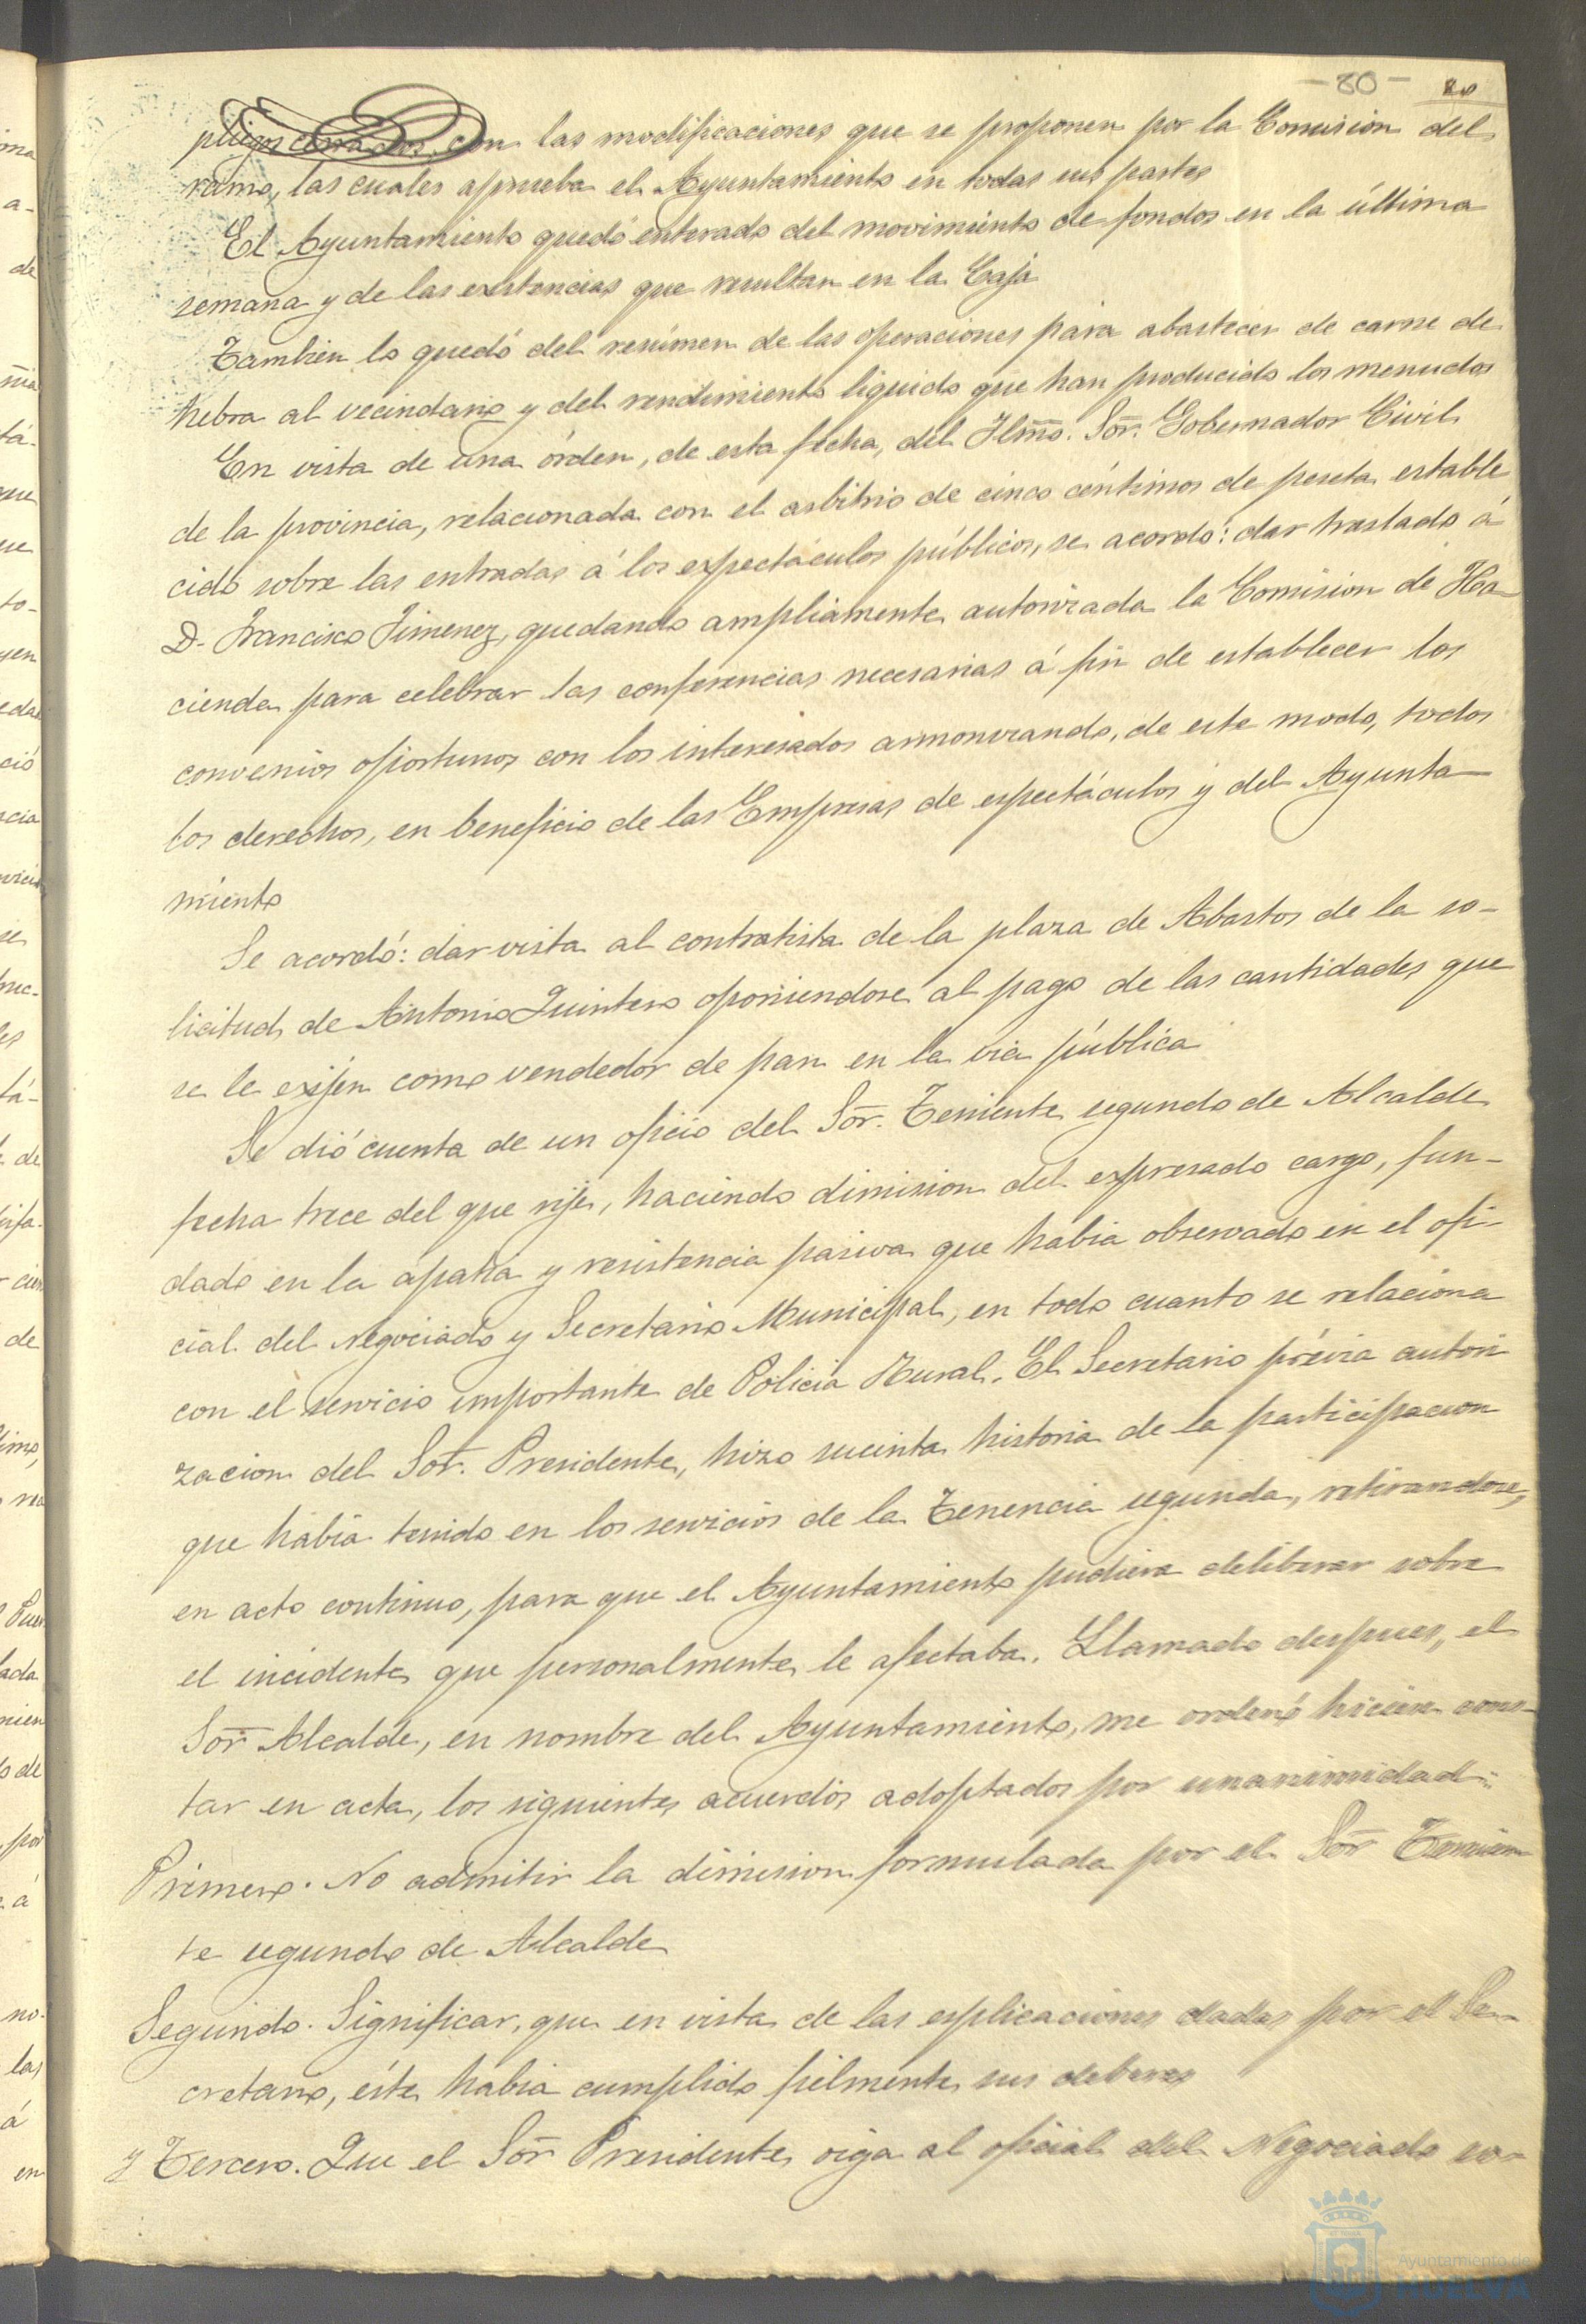 -80- 80
pliegos cerrados, con las modificaciones que se proponen por la Comision del
ramo, las cuales aprueba el Ayuntamiento en todas sus partes
El Ayuntamiento quedó enterado del movimiento de fondos en la última
semana y de las existencias que resultan en la Caja
Tambien lo quedó del resúmen de las operaciones para abastecer de carne de
hebra al vecindario y del rendimiento liquido que han producido los menudos
En vista de una órden, de esta fecha, del Ilmo. Sor. Gobernador Civil
de la provincia, relacionada con el arbitrio de cinco céntimos de peseta estable
cido sobre las entradas á los espectáculos públicos, se acordó: dar traslado á
D. Francisco Jimenez, quedando ampliamente autorizada la Comision de Ha-
cienda para celebrar las conferencias necesarias á fin de establecer los
convenios oportunos con los interesados armonizando, de este modo, todos
los derechos, en beneficio de las Empresas de espectáculos y del Ayunta-
miento
Se acordó: dar vista al contratista de la plaza de Abastos de la so-
licitud de Antonio Quintero oponiendose al pago de las cantidades que
se le exijen como vendedor de pan en la via pública
Se dió cuenta de un oficio del Sor. Teniente segundo de Alcalde
fecha trece del que rije, haciendo dimision del expresado cargo, fun-
dado en la apatia y resistencia pasiva que habia observado en el ofi-
cial del Negociado y Secretario Municipal, en todo cuanto se relaciona
con el servicio importante de Policia Rural. El Secretario prévia autori
zacion del Sor. Presidente, hizo sucinta historia de la participacion
que habia tenido en los servicios de la Tenencia segunda, retirandose,
en acto continuo, para que el Ayuntamiento pudiera deliberar sobre
el incidente que personalmente le afectaba. Llamado despues, el
Sor Alcalde, en nombre del Ayuntamiento, me ordenó hiciera cons-
tar en acta, los siguientes acuerdos adoptados por unanimidad:
Primero. No admitir la dimision formulada por el Sor Tenien
te segundo de Alcalde
Segundo. Significar, que en vista de las esplicaciones dadas por el Se-
cretario, éste habia cumplido fielmente sus deberes
y Tercero. Que el Sor Presidente oiga al oficial del Negociado so-
Ayuntamiento de
HUELVA